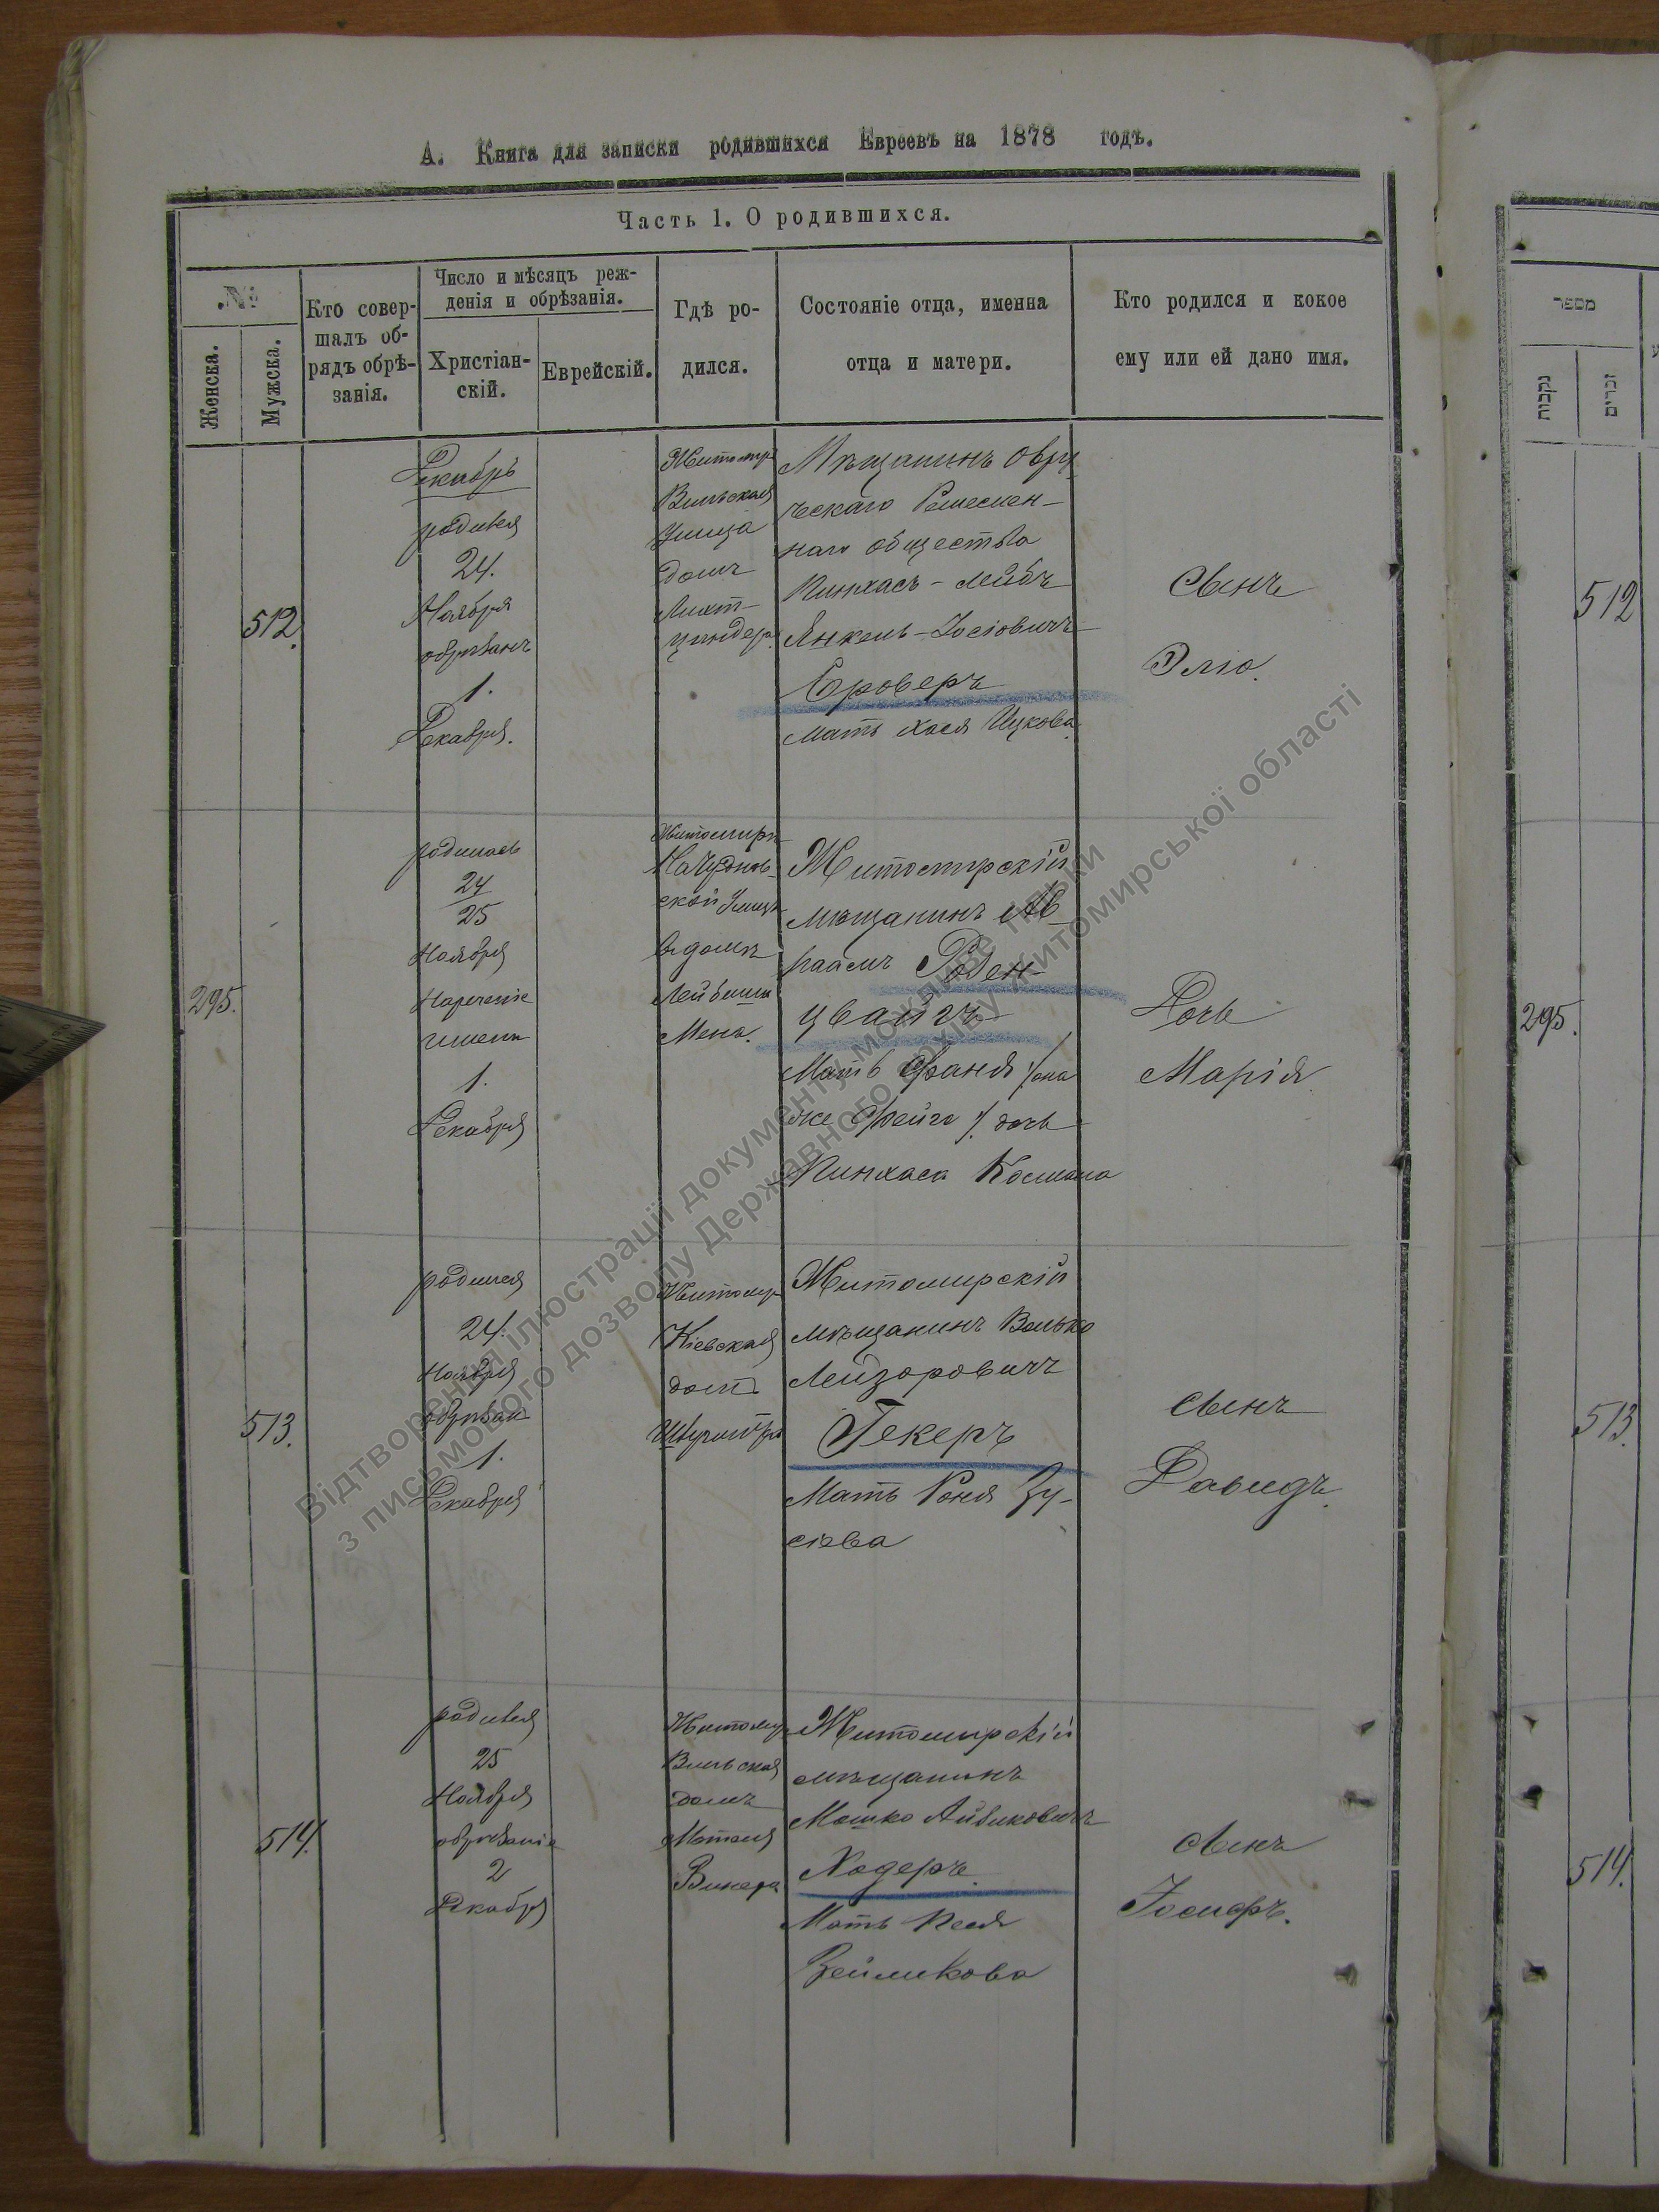 А. Книга для записки родившихся Евреевъ на 1878 годъ.
Часть 1. О родившихся.
№
Женска.
Мужска.
Кто совер-
шалъ об-
рядъ обрѣ-
занія.
Число и мѣсяцъ реж-
денія и обрѣзанія.
Христіан-
скій.
Еврейскій.
Гдѣ ро-
дился.
Состояніе отца, именна
отца и матери.
Кто родился и кокое
ему или ей дано имя.
מספר
נקבות
זכרים
512.
Декабрь
родився
24.
Ноября
обрѣзанъ
1.
Декабря.
Житомир
Вильская
Улица
домъ
Лихт-
циндера.
Мѣщанинъ Овру
ческаго Ремесмен-
наго общества
Пинхасъ-Лейбъ
Янкель-Іосіовичъ
Броверъ
Мать Хася Ицкова
Сынъ
Эліо.
512
295.
родилась
24
25
Ноября
Нареченіе
имени
1.
Декабря
Житомиръ
На Чуднов-
ской Улицѣ
въ домѣ
Лейбиши
Мена.
Житомирскій
мѣщанинъ Ав
раамъ Розен-
цвайгъ
Мать Фаня /:она
же Фейга/: дочь
Пинхаса Космана
Дочь
Марія
295.
513.
родился
24.
Ноября
обрѣзан
1.
Декабря
Житомир
Кіевская
домъ
Житомирскій
мѣщанинъ Волько
Лейзоровичъ
Гекеръ
Мать Роня Зу-
сіева
сынъ
Давидъ.
513.
514.
родився
25
Ноября
обрѣзаніе
2
Декабря
Житомир
Вильская
домъ
Мотеля
Винера
Житомирскій
мѣщанинъ
Мошко Айзиковичъ
Ходеръ.
Мать Песя
Зейликова
сынъ
Іосифъ.
514.
Відтворення ілюстрації документу можливе тільки
з письмового дозволу Державного архіву Житомирської області